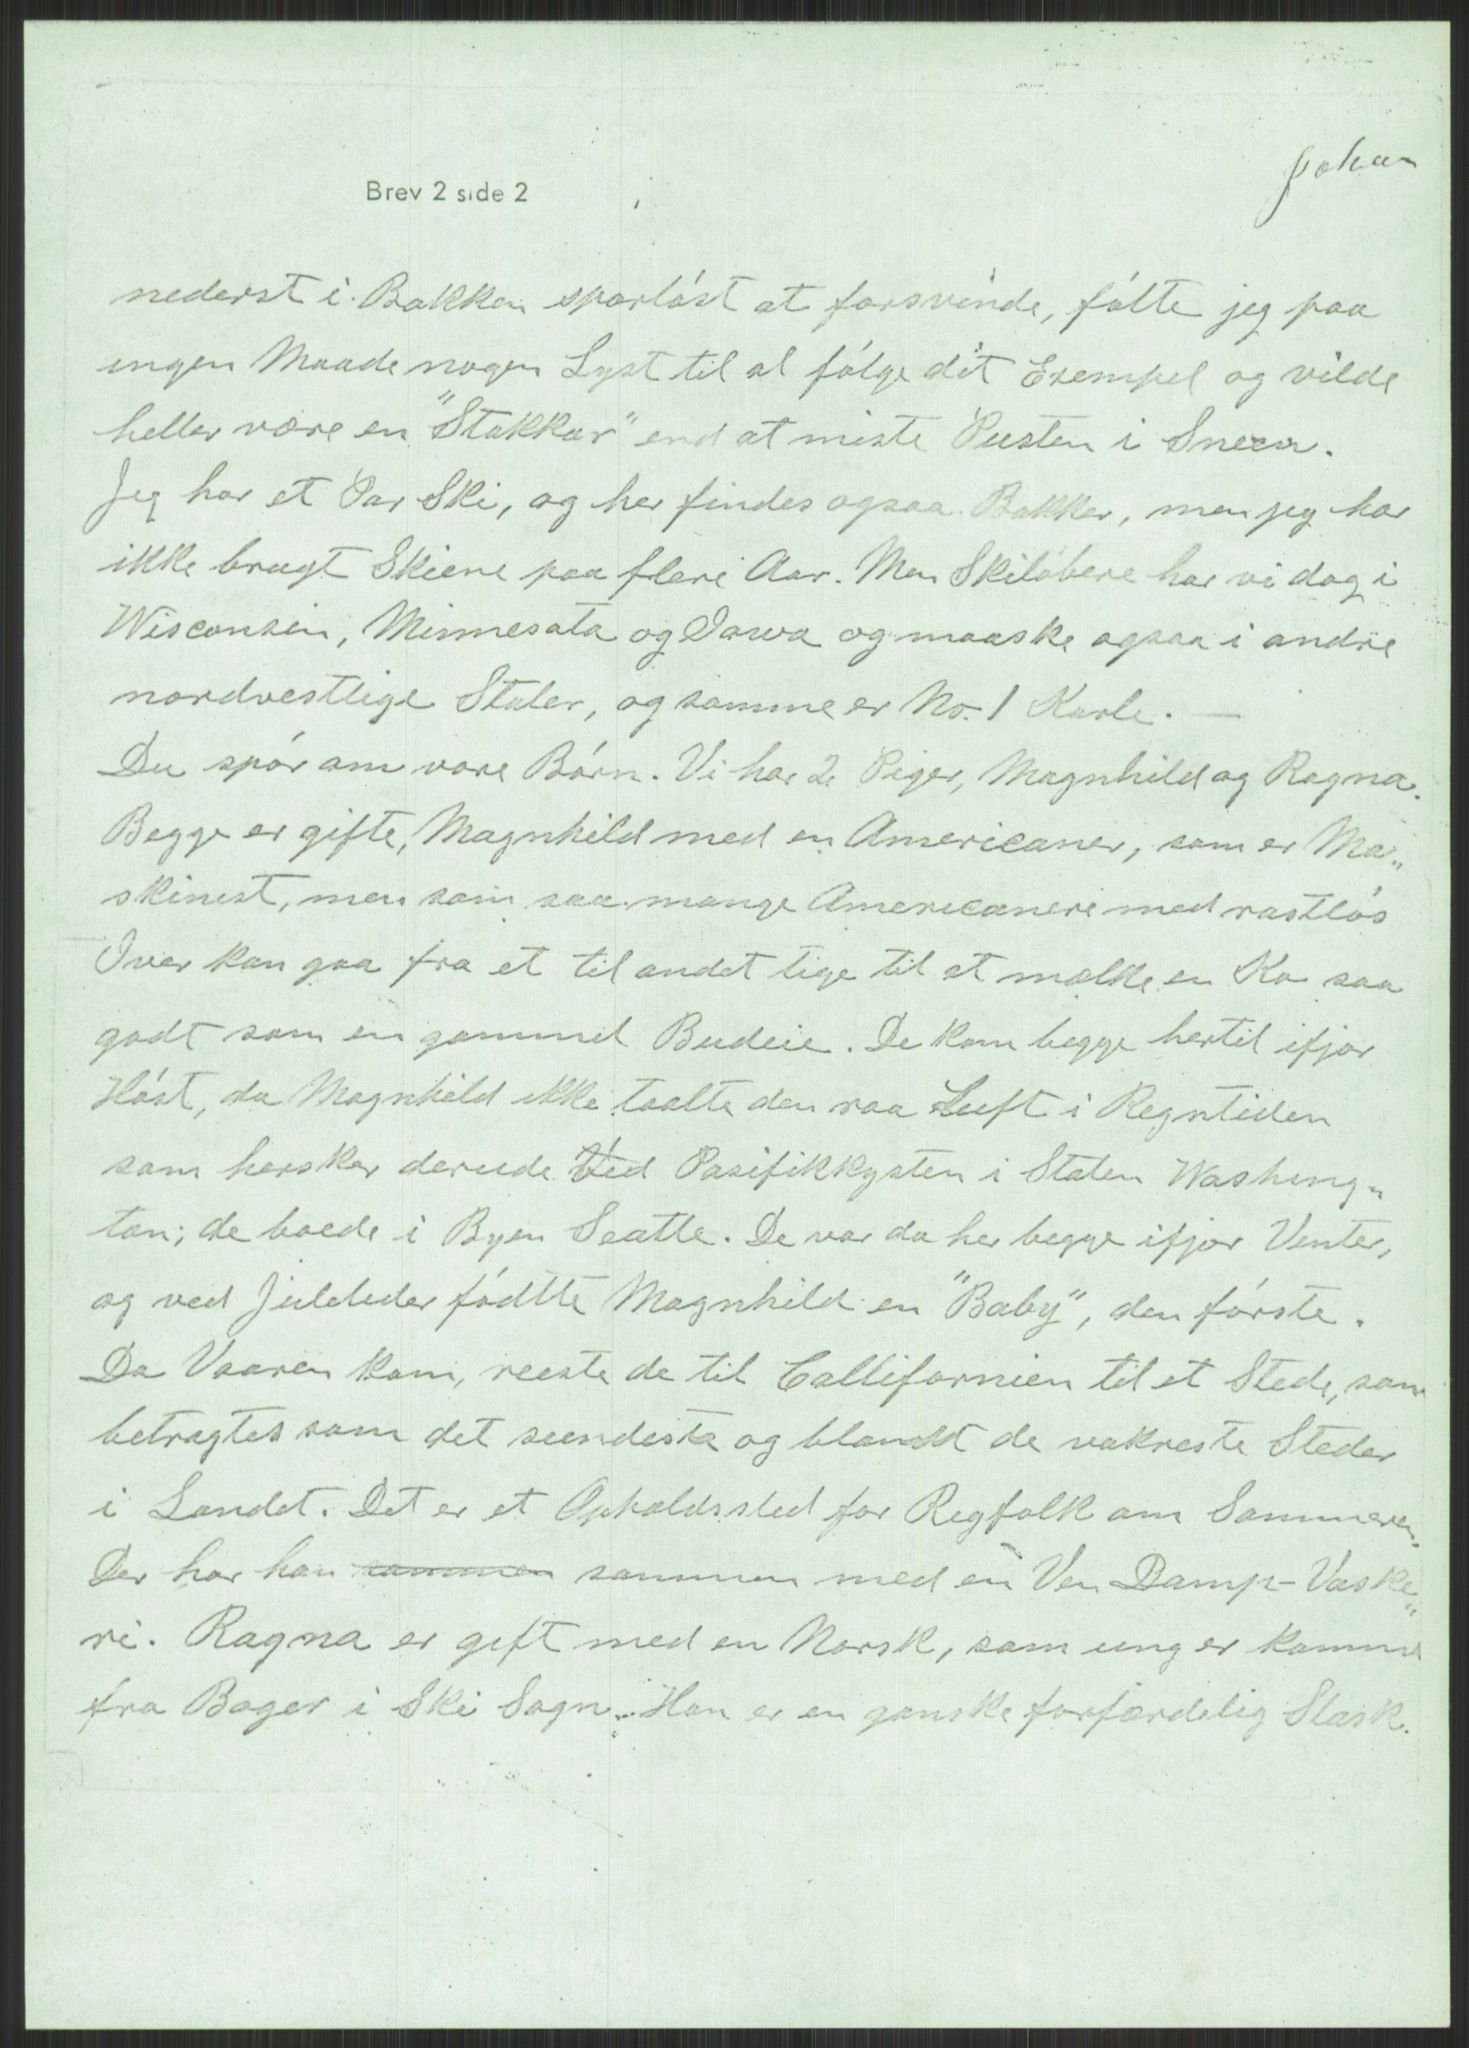 Johan
Brev 2 side 2
nederst i Bakken sporløst at forsvinde, følte jeg paa
ingen Maade nogen Lyst til at følge dit Exempel og vilde
heller være en "Stakkar" end at miste Pusten i Sneen.
Jeg har et Par Ski, og her findes ogsaa Bakker, men jeg har
ikke brugt Skiene paa flere Aar. Men Skiløbere har vi dog i
Wisconsin, Minnesota og Iowa og maaske ogsaa i andre
nordvestlige Stater, og samme er No. 1 Karle. —
Du spør om vore Børn. Vi har 2 Piger, Magnhild og Ragna.
Begge er gifte, Magnhild med en Americaner, som er Ma„
skinist, men som saa mange Americanere med rastløs
Iver kan gaa fra et til andet lige til at mælke en Ko saa
godt som en gammel Budeie. De kom begge hertil ifjor
Høst, da Magnhild ikke taalte den raa Luft i Regntiden
som hersker derude Ved Pasifikkysten i Staten Washing„
ton; de boede i Byen Seatle. De var da her begge ifjor Vinter,
og ved Juletider fødte Magnhild en "Baby", den første.
Da Vaaren kom, reiste de til Callifornien til et Sted, som
betragtes som det sundeste og blandt de vakreste Steder
i Landet. Det er et Opholdssted for Rigfolk om Sommeren.
Der har han sammen sammen med en Ven Damp-Vaske„
ri. Ragna er gift med en Norsk, som ung er kommet
fra Bøger i Ski Sogn. Han er en ganske forfærdelig Slask.